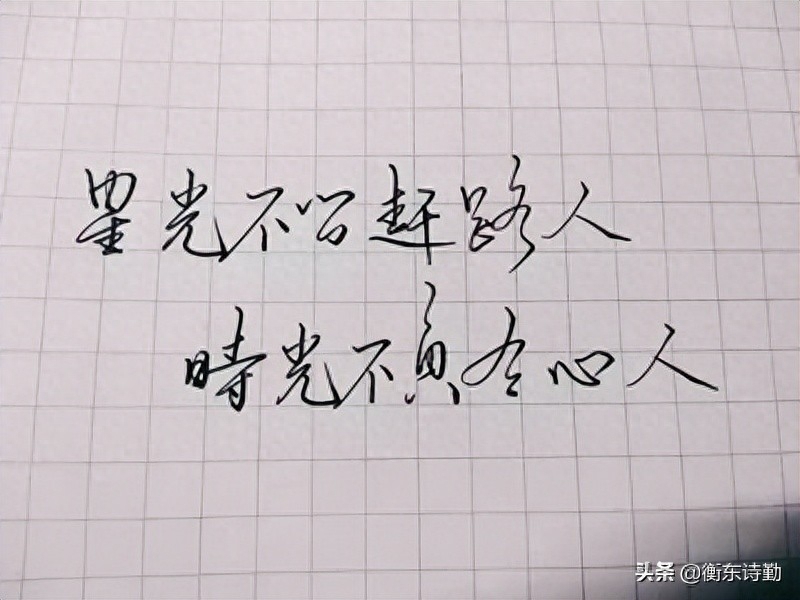 星光不留赶路人
時光不負有心人
头条 @衡东诗勤